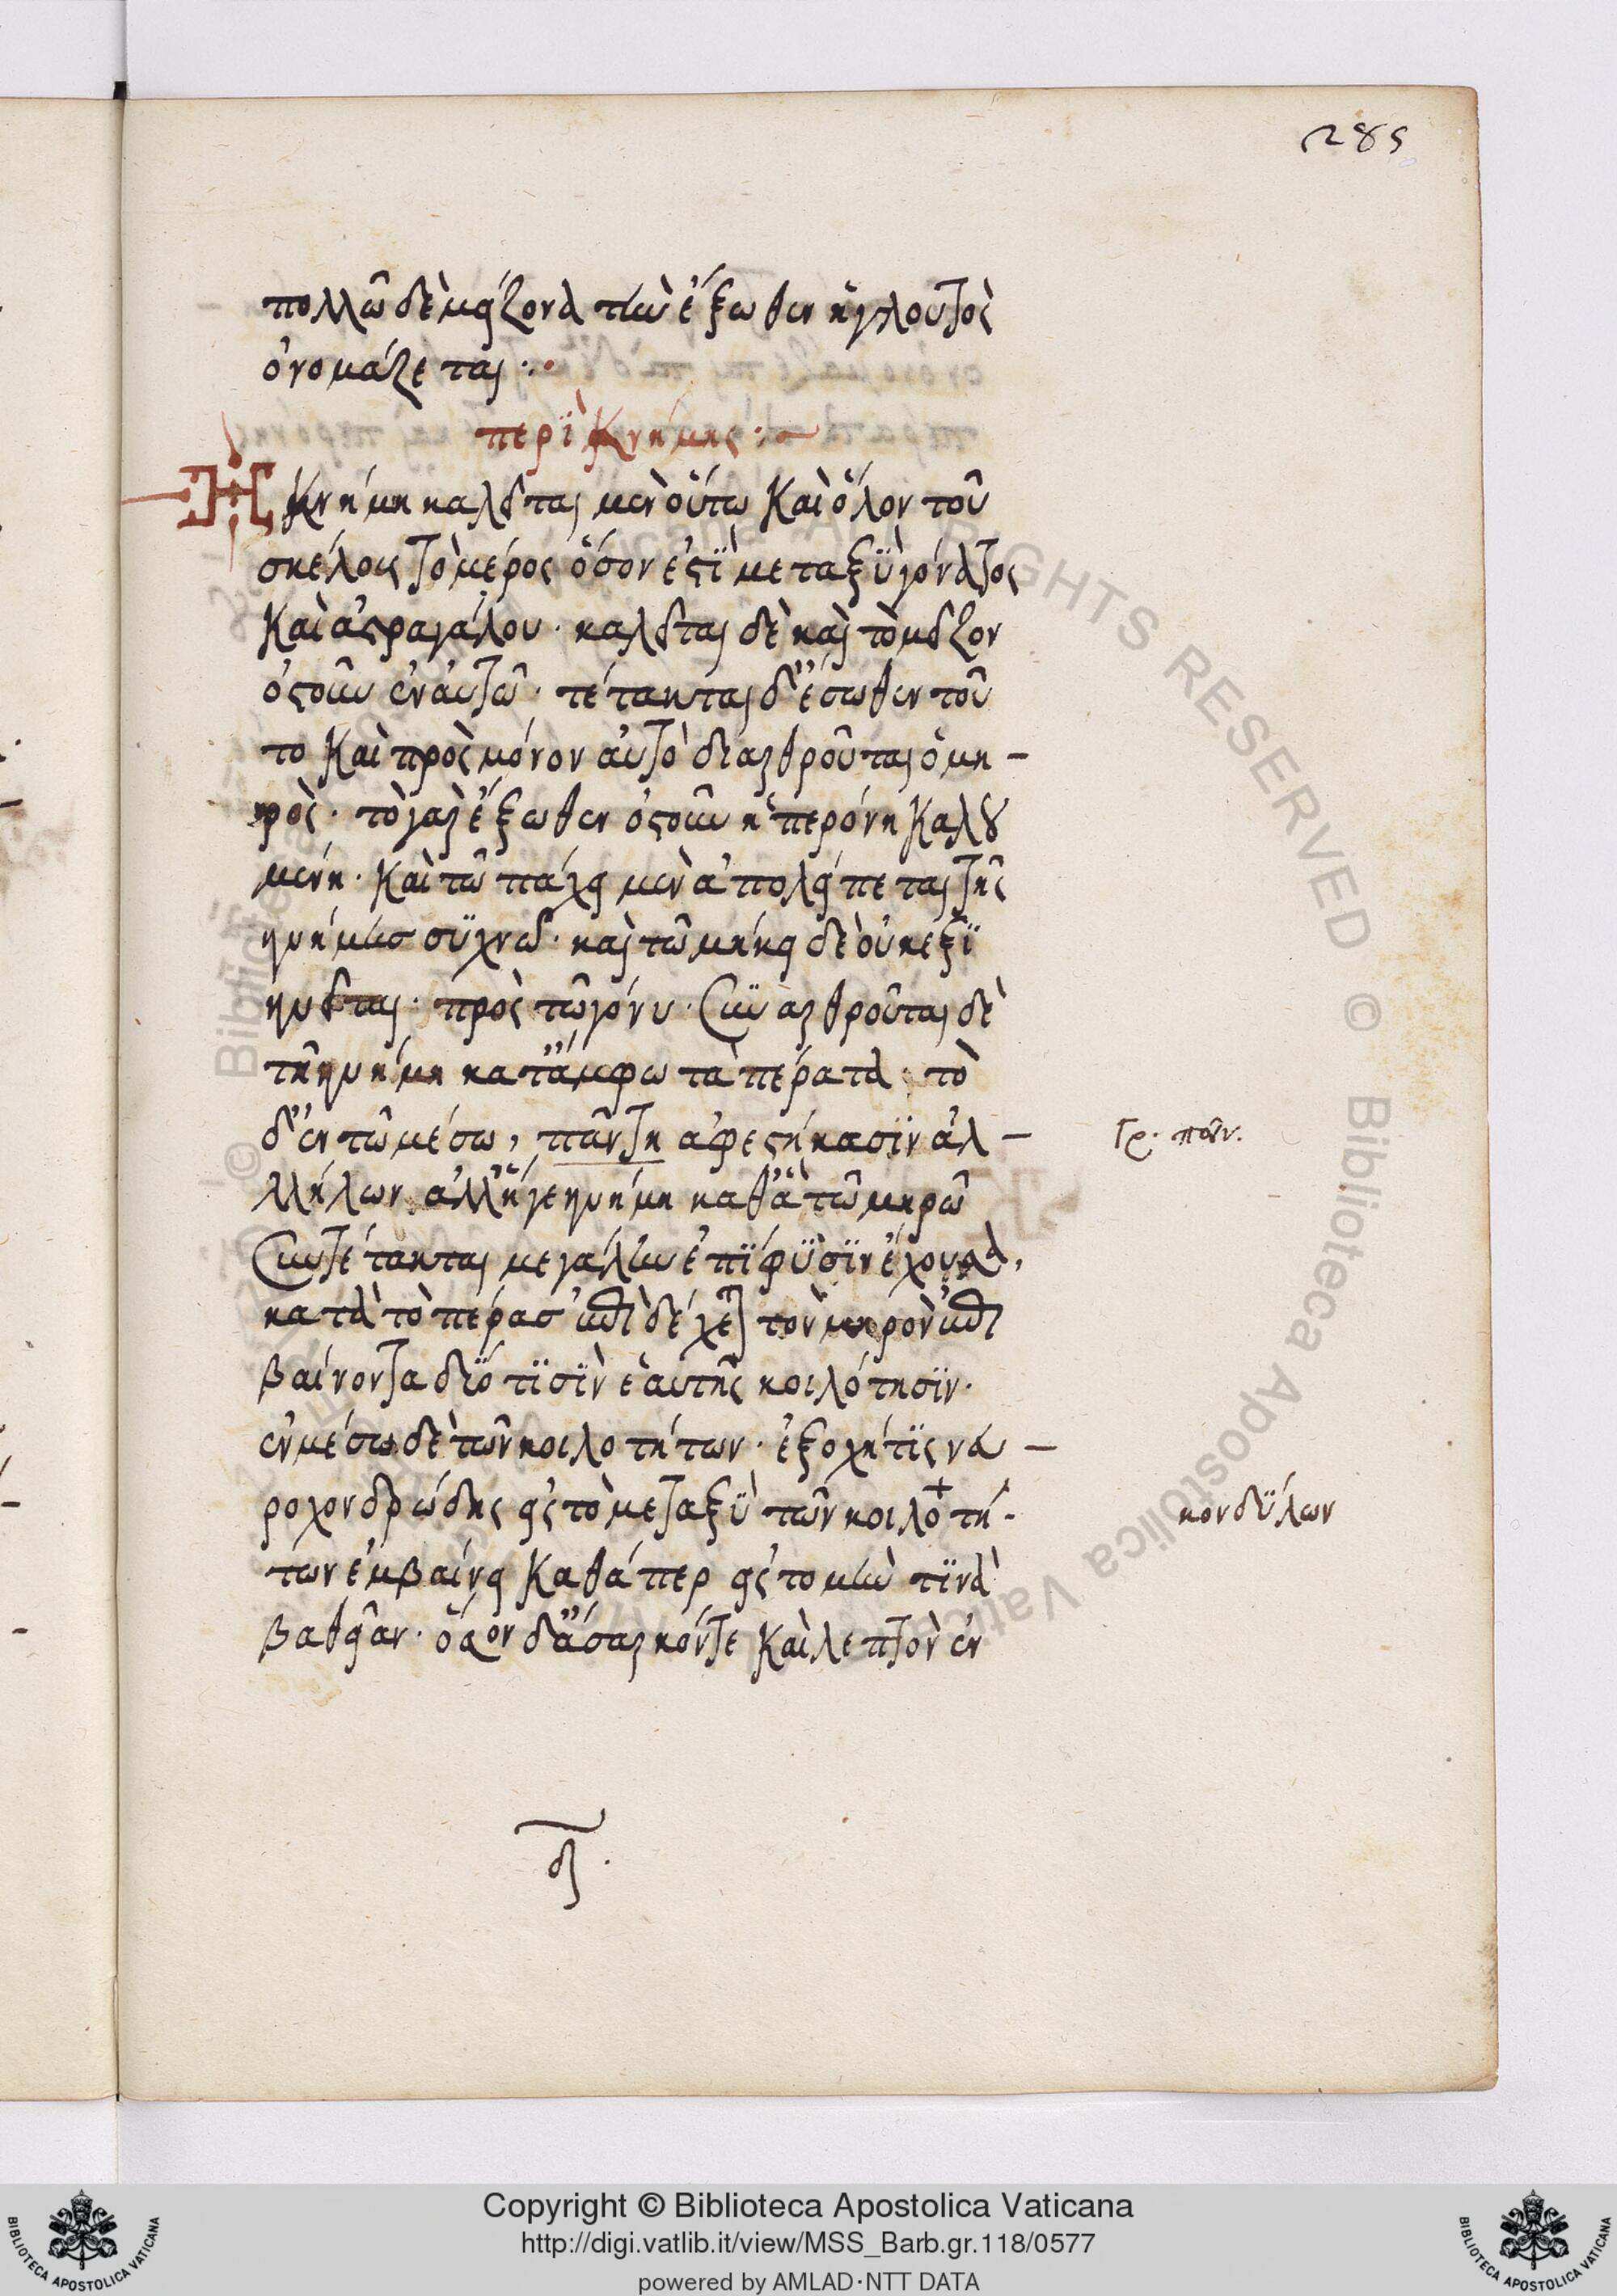 285
πολλῶ δὲ μείζονα τὴν ἔξωθεν ἣ γλουτὸς
ὀνομάζεται·
περὶ κνήμης
Η κνήμη καλεῖται μὲν οὕτω καὶ ὅλον τοῦ
σκέλους τὸ μέρος ὅσον ἐστὶ μεταξὺ γόνατος
καὶ ἀστραγάλου· καλεῖται δὲ καὶ τὸ μεῖζον
ὀστοῦν ἐν αὐτῶ· τέτακται δ' ἔσωθεν τοῦ
το καὶ πρὸς μόνον αὐτὸ διαρθροῦται ὁ μη -
ρὸς· τὸ γὰρ ἔξωθεν ὀστοῦν ἡ περόνη καλου
μένη· καὶ τῶ πάχει μὲν ἀπολείπεται τῆς
κνήμης συχνῶ· καὶ τῶ μήκει δὲ οὐκ ἐξι
κνεῖται· πρὸς τῶ γόνυ· συναρθροῦται δὲ
τῆ κνήμη κατ' ἄμφω τὰ πέρατα· τὸ
δ' ἐν τῶ μέσω, πάντη ἀφεστήκασιν ἀλ -
λήλων ἀλλ' ἥγε κνήμη καθ' ἃ τῶ μηρῶ
συντέτακται μεγάλην ἐπίφυσιν ἔχουσα,
κατὰ τὸ πέρας ἐπιδέχεται τὸν μηρὸν ἐπι
βαίνοντα δυό τισὶν ἑαυτῆς κοιλότησιν·
ἐν μέσω δὲ τῶν κοιλοτήτων· ἐξοχή τις νευ -
ροχονδρώδης εἰς τὸ μεταξὺ τῶν κοιλοτή -
των ἐμβαίνει καθάπερ εἰς τομήν τινὰ
βαθεῖαν· ὅσον δ' ἄσαρκόν τε καὶ λεπτὸν ἐν
γρ. ποῦν.
κονδύλων
Copyright © Biblioteca Apostolica Vaticana
http://digi.vatlib.it/view/MSS_Barb.gr.118/0577
powered by AMLAD·NTT DATA